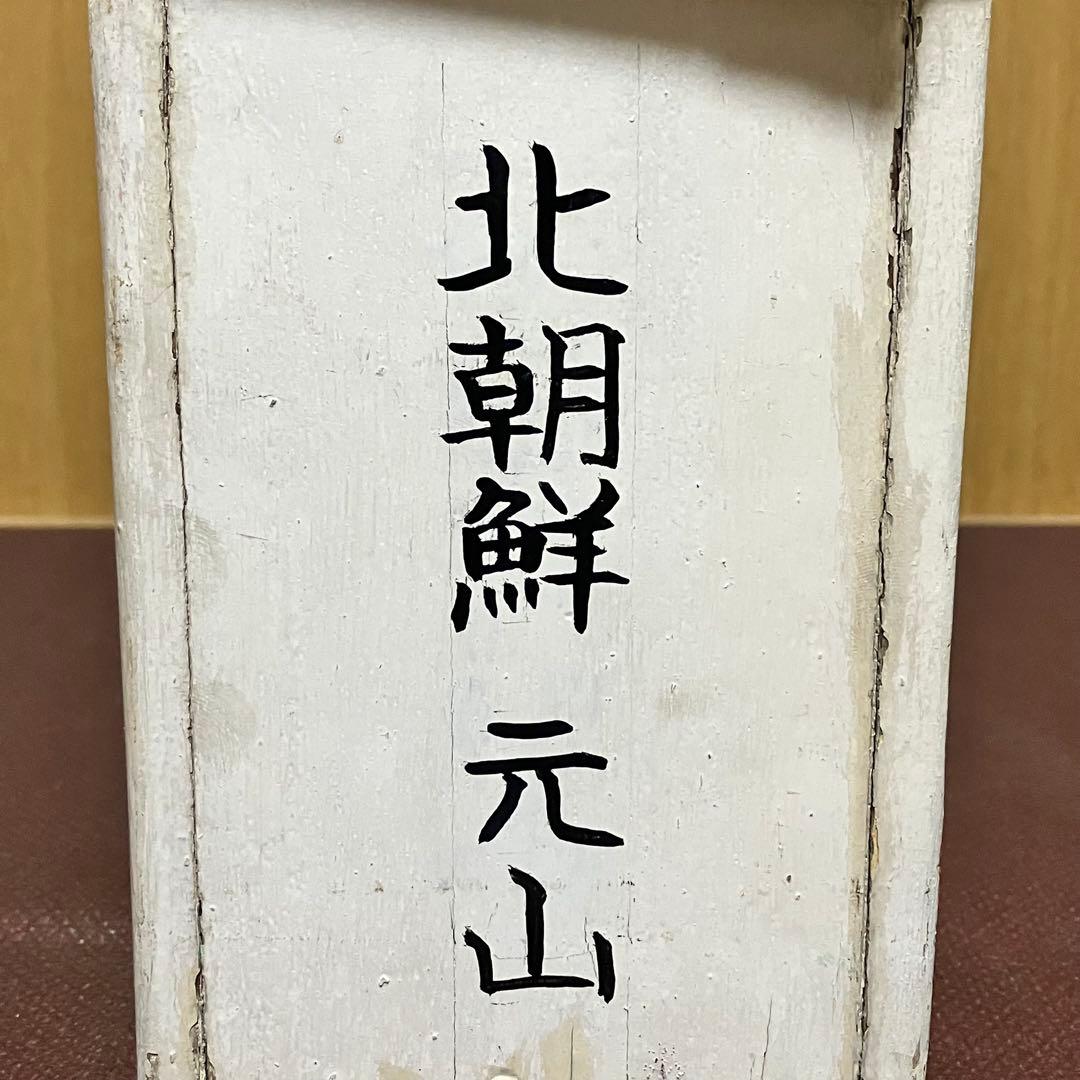 北朝鮮 元山